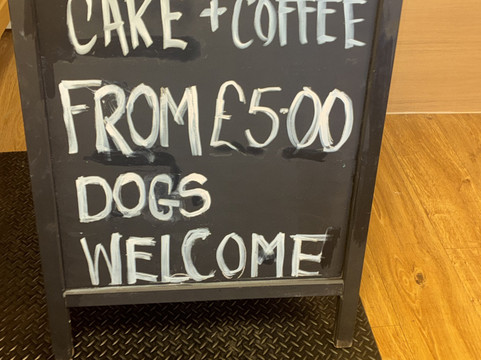 CAKE + COFFEE
FROM £5.00
DOGS
WELCOME